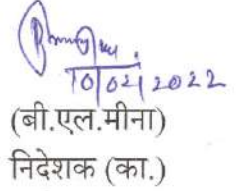 10/02/2022
(बी.एल.मीना)
निदेशक (का.)